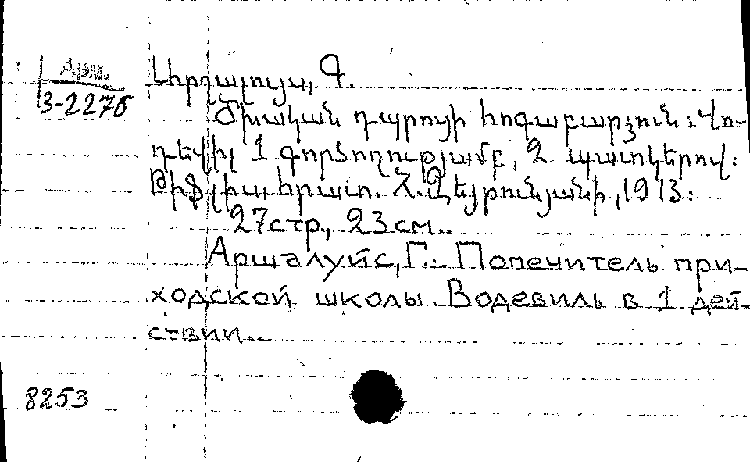 Арш.
3-2276
Արշալույս, Գ.
Ծխական դպրոցի հոգաբարձուն: Վո-
դեվիլ 1 գործողությամբ, 2 պատկերով:
Թիֆլիս, հրատ.
, 1913:
27стр., 23см..
Аршалуйс, Г. Попечитель при-
ходской школы. Водевиль в 1 дей-
ствии..
8253